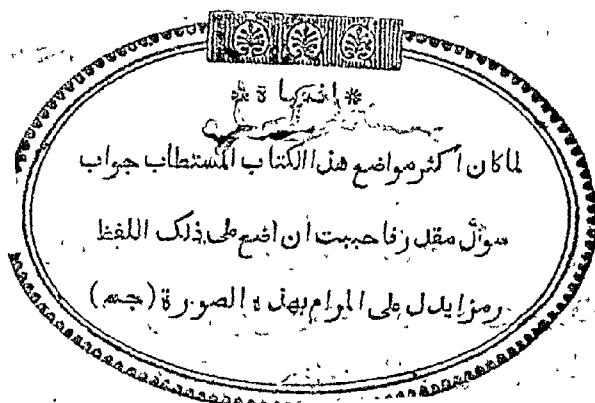 لما كان اكثر مواضع هذا الكتاب المستطاب جواب
سوال مقدر فاحببت ان اضع على ذلك اللفظ
رمزا يدل على المرام بهذه الصورة (جسم)